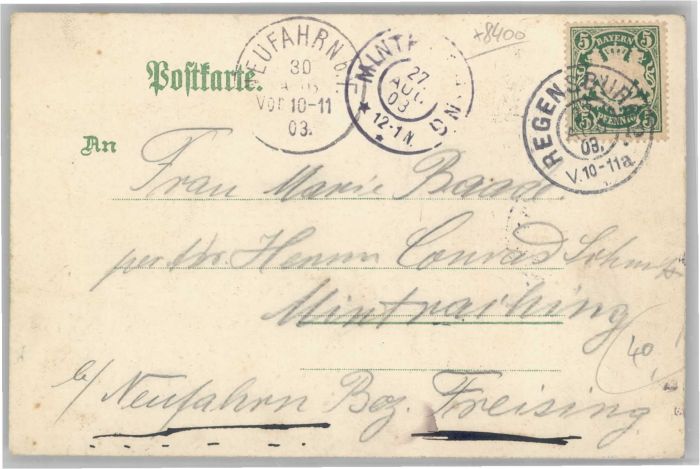 +8400
NEUFAHRN b. F.
30
AUG
Vor 10-11
03.
MINTRACHING
27
AUG
03
12-1 N.
5 BAYERN 5
5 PFENNIG 5
REGENSBURG
03.
V. 10-11 a
Postkarte.
An
Frau Marie Baade
per Adr. Herrn Conrad
Mintraching
40
b/ Neufahrn Bez. Freising